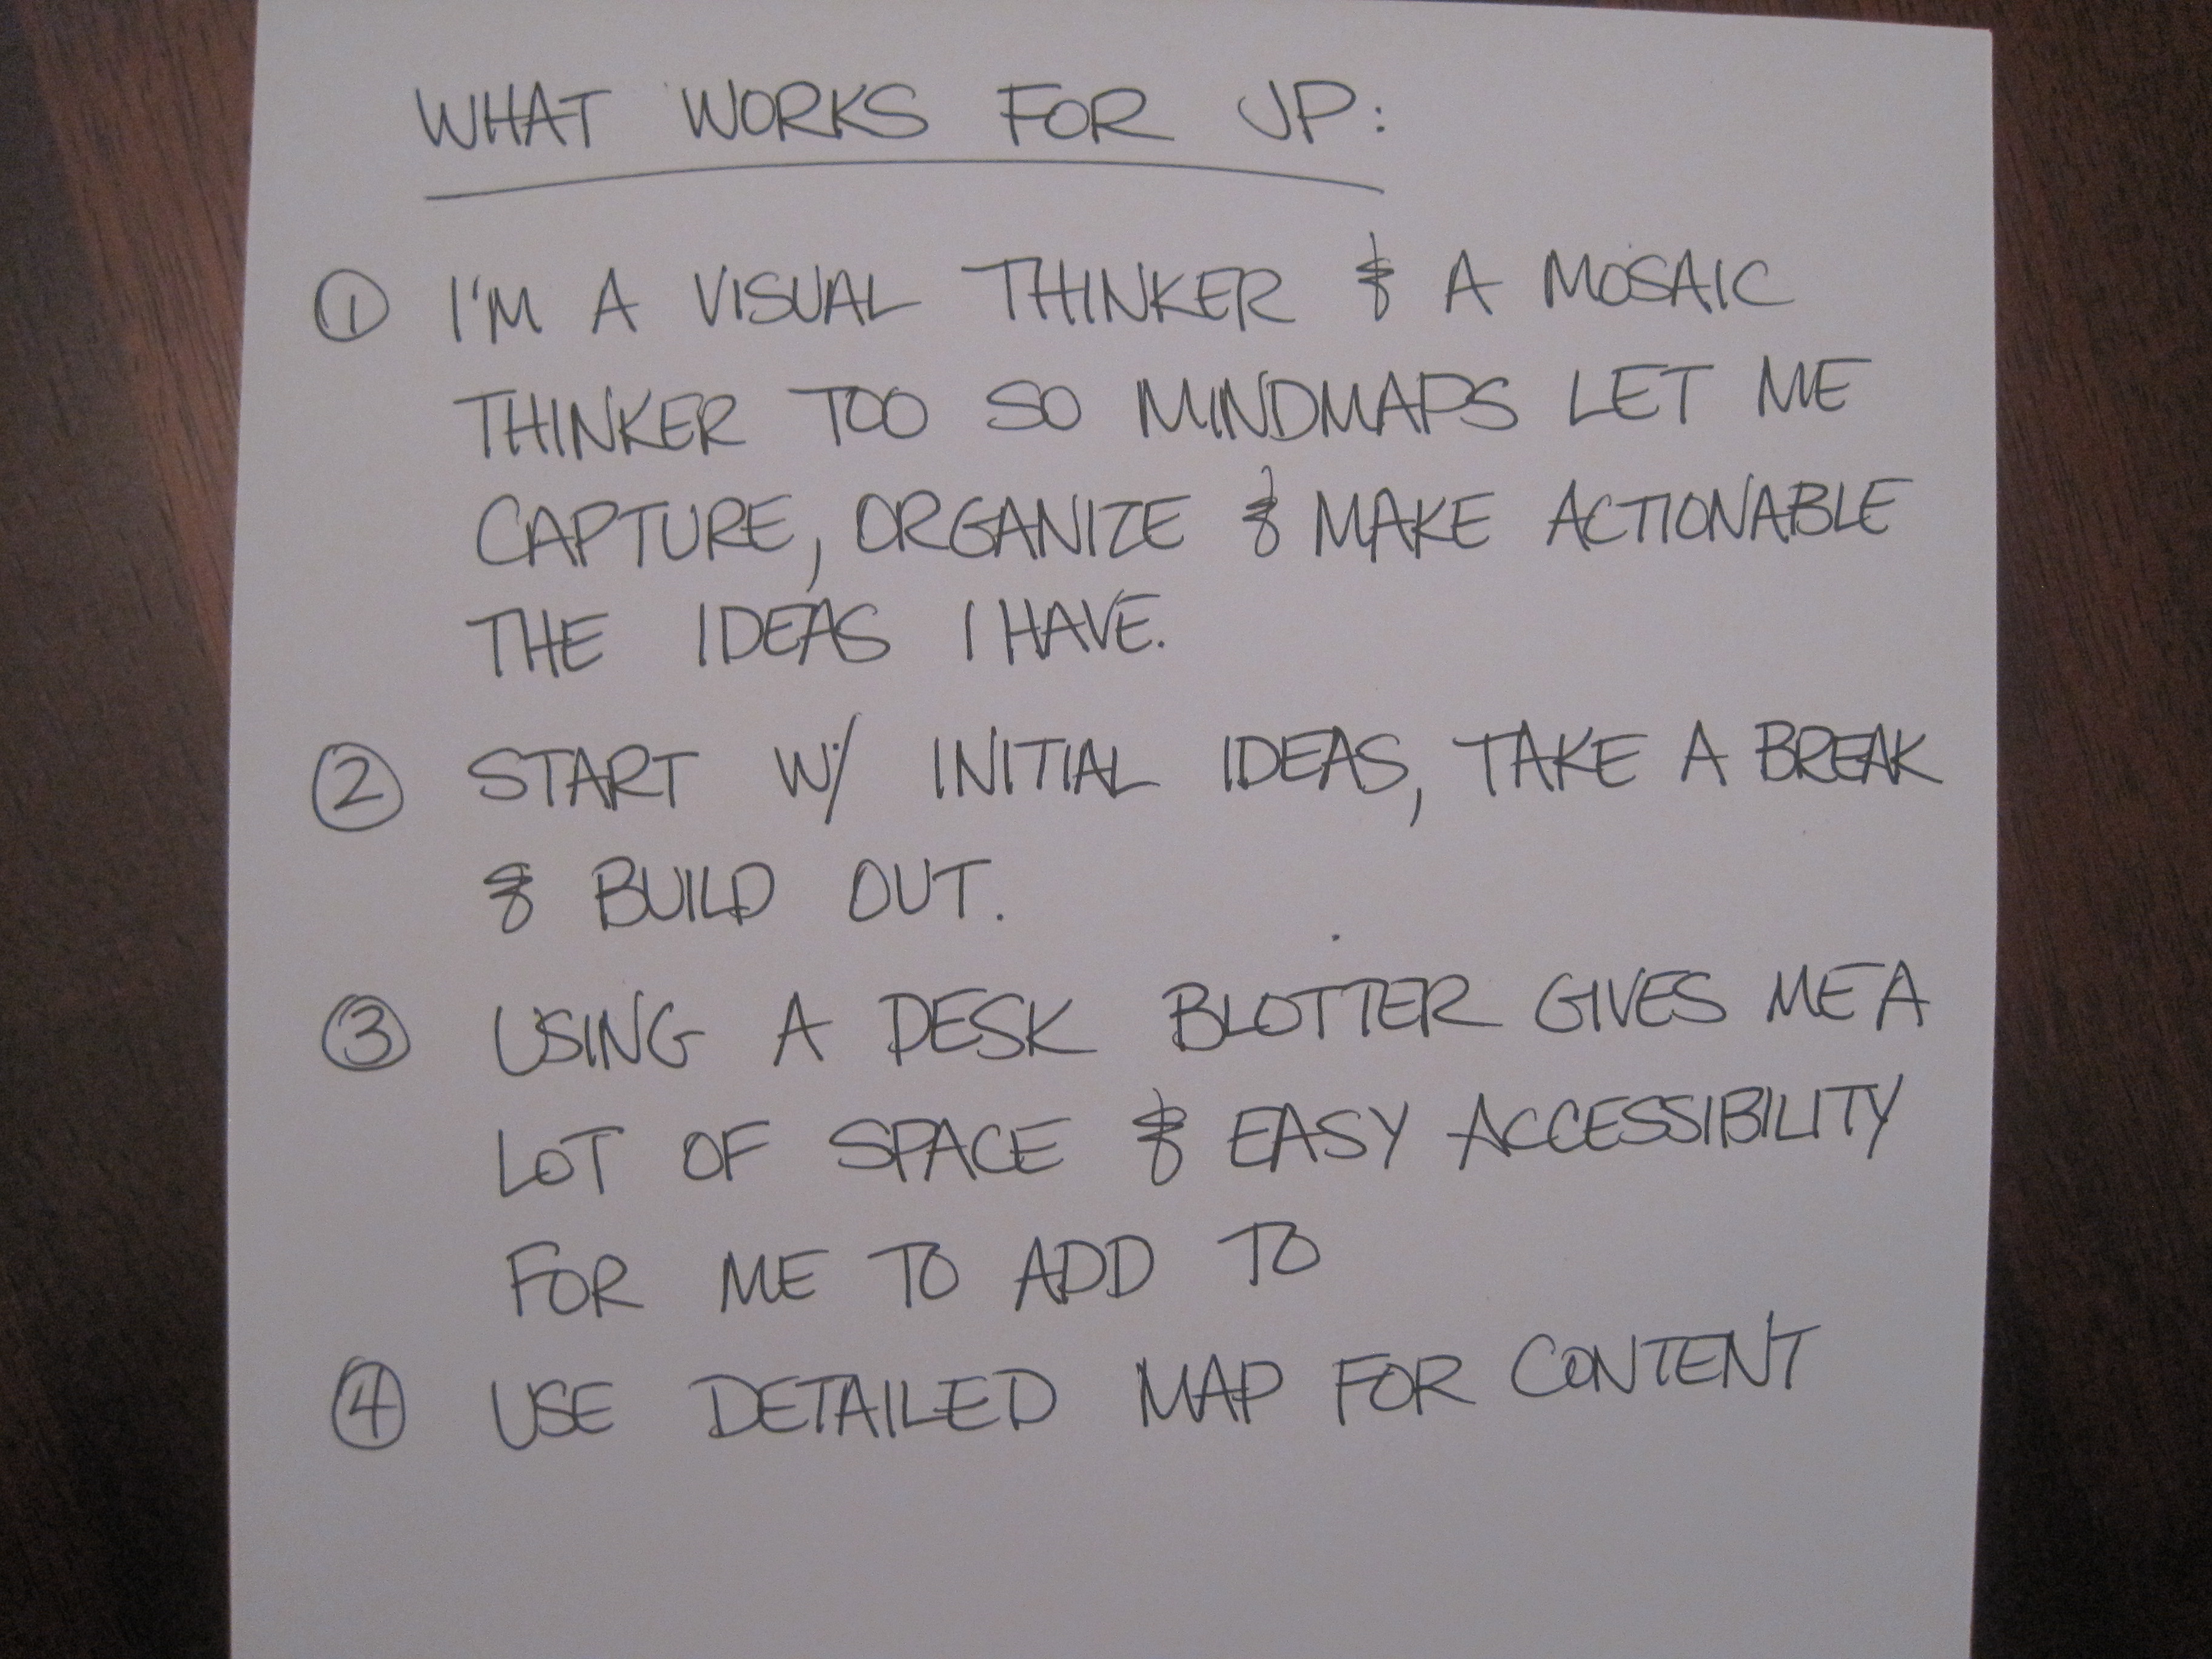 WHAT WORKS FOR JP:
① I'M A VISUAL THINKER & A MOSAIC
THINKER TOO SO MINDMAPS LET ME
CAPTURE, ORGANIZE & MAKE ACTIONABLE
THE IDEAS I HAVE.
② START W/ INITIAL IDEAS, TAKE A BREAK
& BUILD OUT.
③ USING A DESK BLOTTER GIVES ME A
LOT OF SPACE & EASY ACCESSIBILITY
FOR ME TO ADD TO
④ USE DETAILED MAP FOR CONTENT